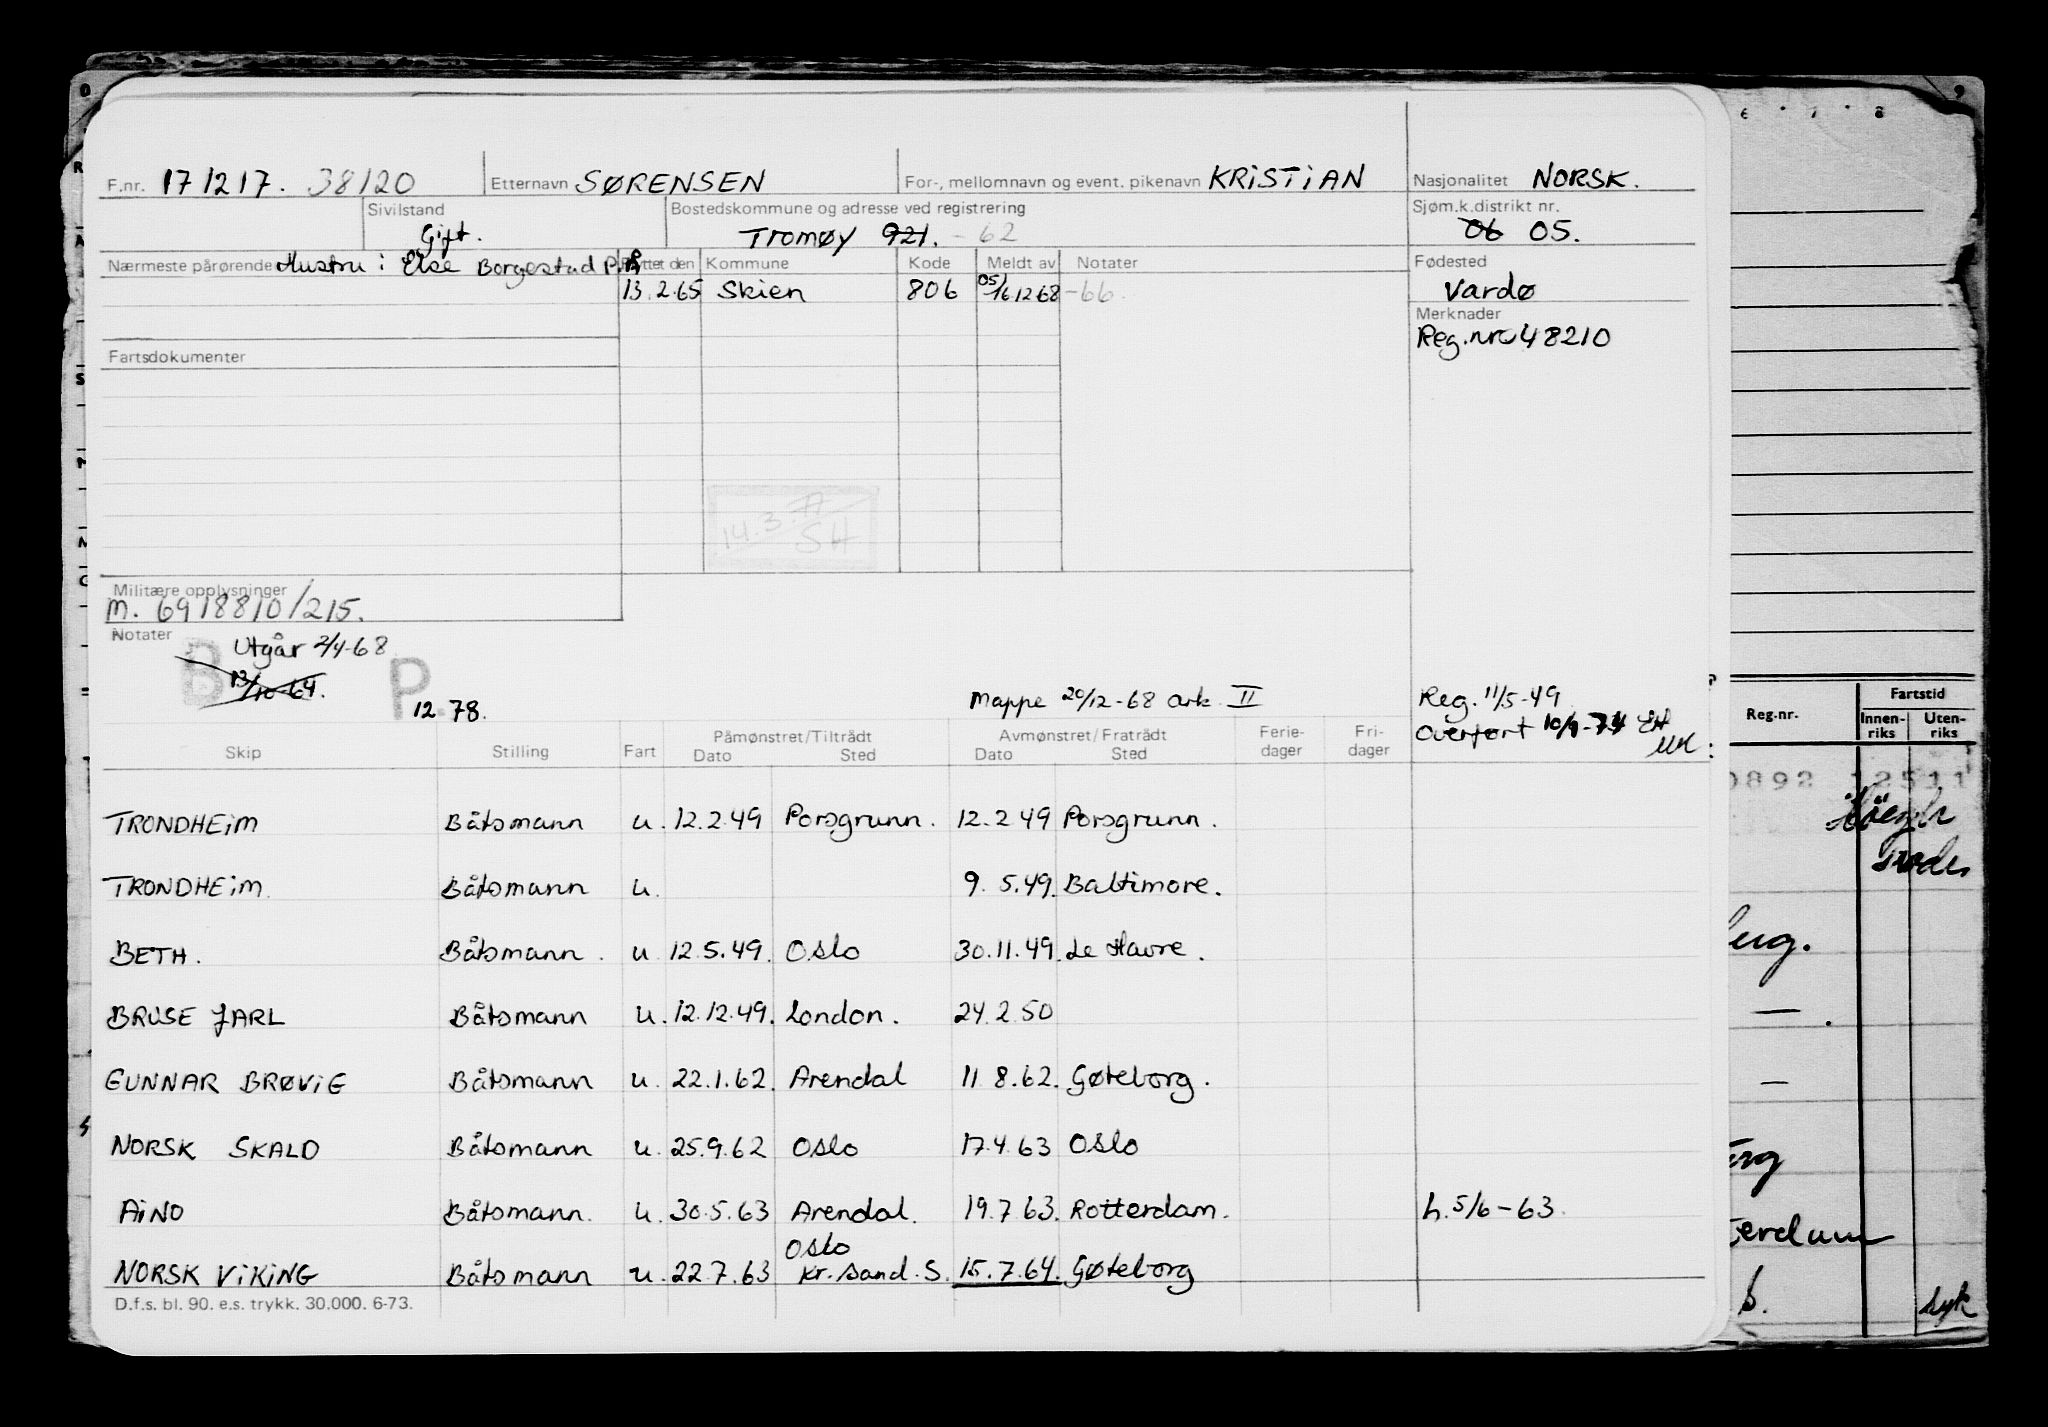 F.nr. 171217. 38120 Etternavn SØRENSEN For-, mellomnavn og event. pikenavn KRISTIAN Nasjonalitet NORSK.
Sivilstand Gift. Bostedskommune og adresse ved registrering Tromøy 921. - 62 Sjøm.k.distrikt nr. 06 05.
Nærmeste pårørende Hustru: Else Borgestad p.å Flyttet den Kommune Kode Meldt av Notater Fødested
13.2.65 Skien 806 05/16 12 68 -66. Vardø
Merknader
Reg.nr. 048210
Fartsdokumenter
14.3.77
SH
Militære opplysninger
M. 6918810/215.
Notater
B Utgår 2/4-68
13/10-64. P.
12.78. Mappe 20/12-68 ark. II Reg. 11/5-49
Overført
Skip Stilling Fart Påmønstret/Tiltrådt Dato Sted Avmønstret/Fratrådt Dato Sted Ferie-dager Fri-dager
TRONDHEIM Båtsmann u. 12.2.49 Porsgrunn. 12.2 49 Porsgrunn.
TRONDHEIM. Båtsmann u. 9. 5.49. Baltimore.
BETH. Båtsmann. u. 12.5.49. Oslo 30.11.49. Le Havre.
BRUSE JARL Båtsmann u. 12.12.49. London. 24.2.50
GUNNAR BRØVIG Båtsmann u. 22.1.62. Arendal 11 8.62. Gøteborg.
NORSK SKALD Båtsmann u. 25.9.62 Oslo 17.4.63 Oslo
AINO Båtsmann. u. 30.5.63 Arendal. 19.7.63. Rotterdam. h. 5/6-63.
Oslo
NORSK VIKING Båtsmann u. 22.7.63 Kr.sand.S. 15.7.64. Gøteborg
D.f.s. bl. 90. e.s. trykk. 30.000. 6-73.
Reg.nr. Fartstid
Innen-riks Uten-riks
0892 12511
syk